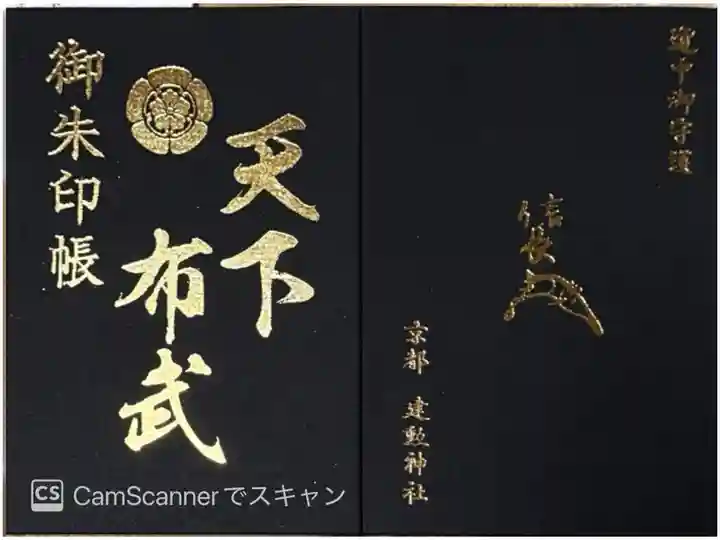 道中御守護
信長
京都 建勲神社
天下
布武
御朱印帳
CS CamScannerでスキャン